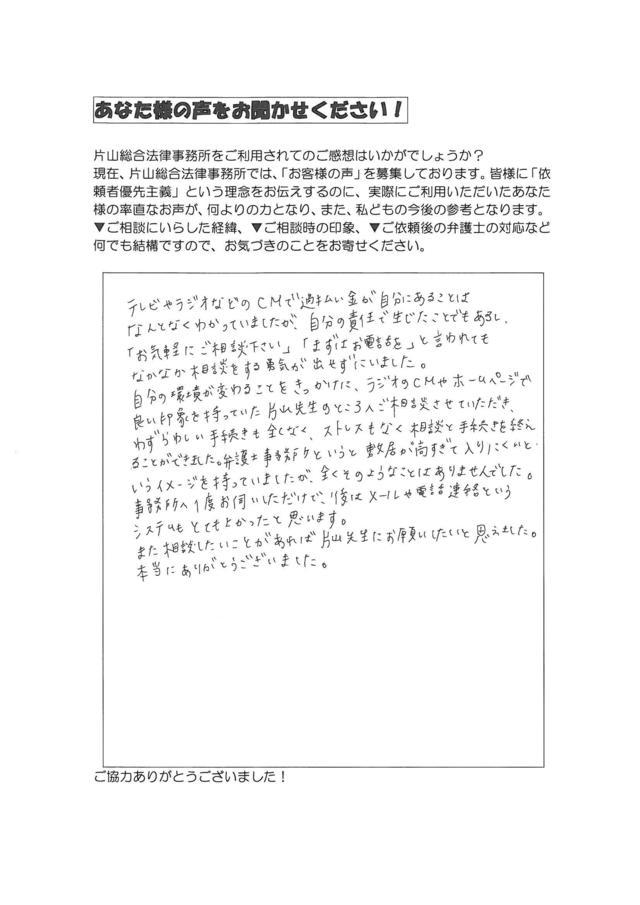 あなた様の声をお聞かせください！
片山総合法律事務所をご利用されてのご感想はいかがでしょうか？
現在、片山総合法律事務所では、「お客様の声」を募集しております。皆様に「依
頼者優先主義」という理念をお伝えするのに、実際にご利用いただいたあなた
様の率直なお声が、何よりの力となり、また、私どもの今後の参考となります。
▼ご相談にいらした経緯、▼ご相談時の印象、▼ご依頼後の弁護士の対応など
何でも結構ですので、お気づきのことをお寄せください。
テレビやラジオなどのCMで過払い金が自分にあることは
なんとなくわかっていましたが、自分の責任で生じたことでもあるし、
「お気軽にご相談下さい」「まずはお電話を」と言われても
なかなか相談をする勇気が出せずにいました。
自分の環境が変わることをきっかけに、ラジオのCMやホームページで
良い印象を持っていた片山先生のところへご相談させていただき、
わずらわしい手続きも全くなく、ストレスもなく相談と手続きを終え
ることができました。弁護士事務所というと敷居が高すぎて入りにくいと
いうイメージを持っていましたが、全くそのようなことはありませんでした。
事務所へ1度お伺いしただけで、後はメールや電話連絡という
システムもとてもよかったと思います。
また相談したいことがあれば片山先生にお願いしたいと思えました。
本当にありがとうございました。
ご協力ありがとうございました！